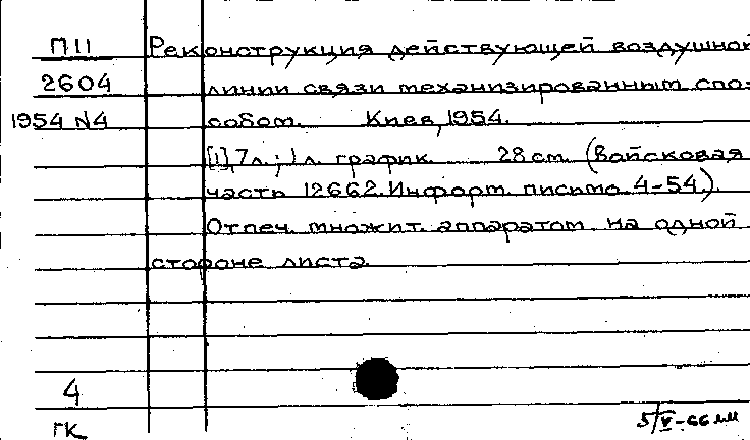 П11 Реконструкция действующей воздушной
2604 линии связи механизированным спо-
1954 N4 собом. Киев, 1954.
[1], 7 л.; 1 л. график. 28 см. (Войсковая
часть 12662. Информ. письмо 4-54.).
Отпеч. множит. аппаратом на одной
стороне листа.
4
ГК
5/V-66